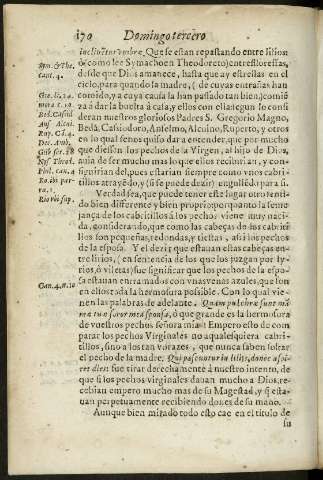 170 Domingo tercero
inclinētur vmbræ, Que se estan repastando entre lirios
ò (como lee Symacho en Theodoreto) entre flores, as,
desde que Dios amanece, hasta que ay estrellas en el
cielo, para quando la madre, (de cuyas entrañas han
comido, y a cuya causa la han passado tan bien) comiẽ
za à dar la buelta à casa, y ellos con ella segun lo consi
deran nuestros gloriosos Padres S. Gregorio Magno,
Beda, Casiodoro, Anselmo, Alcuino, Ruperto, y otros
en lo qual se nos quiso dar a entender, que por mucho
que diessen los pechos de la Virgen, al hijo de Dios,
auia de ser mucho mas lo que ellos recibirian, y con-
siguirian del, pues estarian siempre como vnos cabri-
tillos atrayẽdo, y (si se puede dezir) engulléndo para si.
Verdad sea, que puede tener este lugar otro senti-
do bien differente y bien proprio: por quanto la seme
jança de los cabritillos à los pechos viene muy naci-
da, considerando, que como las cabeças de los cabriti
llos son pequeñas, redondas, y tiestas, assi los pechos
de la esposa. Y el dezir que estauan estas cabeças en-
tre lirios, (en sentencia de los que los juzgan por ly-
rios, ò viletas) fue significar que los pechos de la espo-
sa estauan entramados con vnas venas azules, que son
en ellos toda la hermosura possible. Con lo qual vie-
nen las palabras de adelante. Quam pulchræ sunt mã
mæ tuæ soror mea sponsa, ò que grande es la hermosura
de vuestros pechos señora mia! Empero esto de com-
parar los pechos Virginales no a qualesquiera cabri-
tillos, sino a los tan vorazes, y que nunca saben soltar
el pecho de la madre, Qui pascuntur in lilijs, donec aspi-
ret dies: fue tirar derechamente à nuestro intento, de
que si los pechos virginales dauan mucho a Dios, re-
cebian empero mucho mas de su Magestad, y q̃ esta-
uan perpetuamente recibiendo dones de su mano.
Aunque bien mirado todo esto cae en el titulo de
su
Sym. & The.
cant. 4.
Cant. 4. n. 10